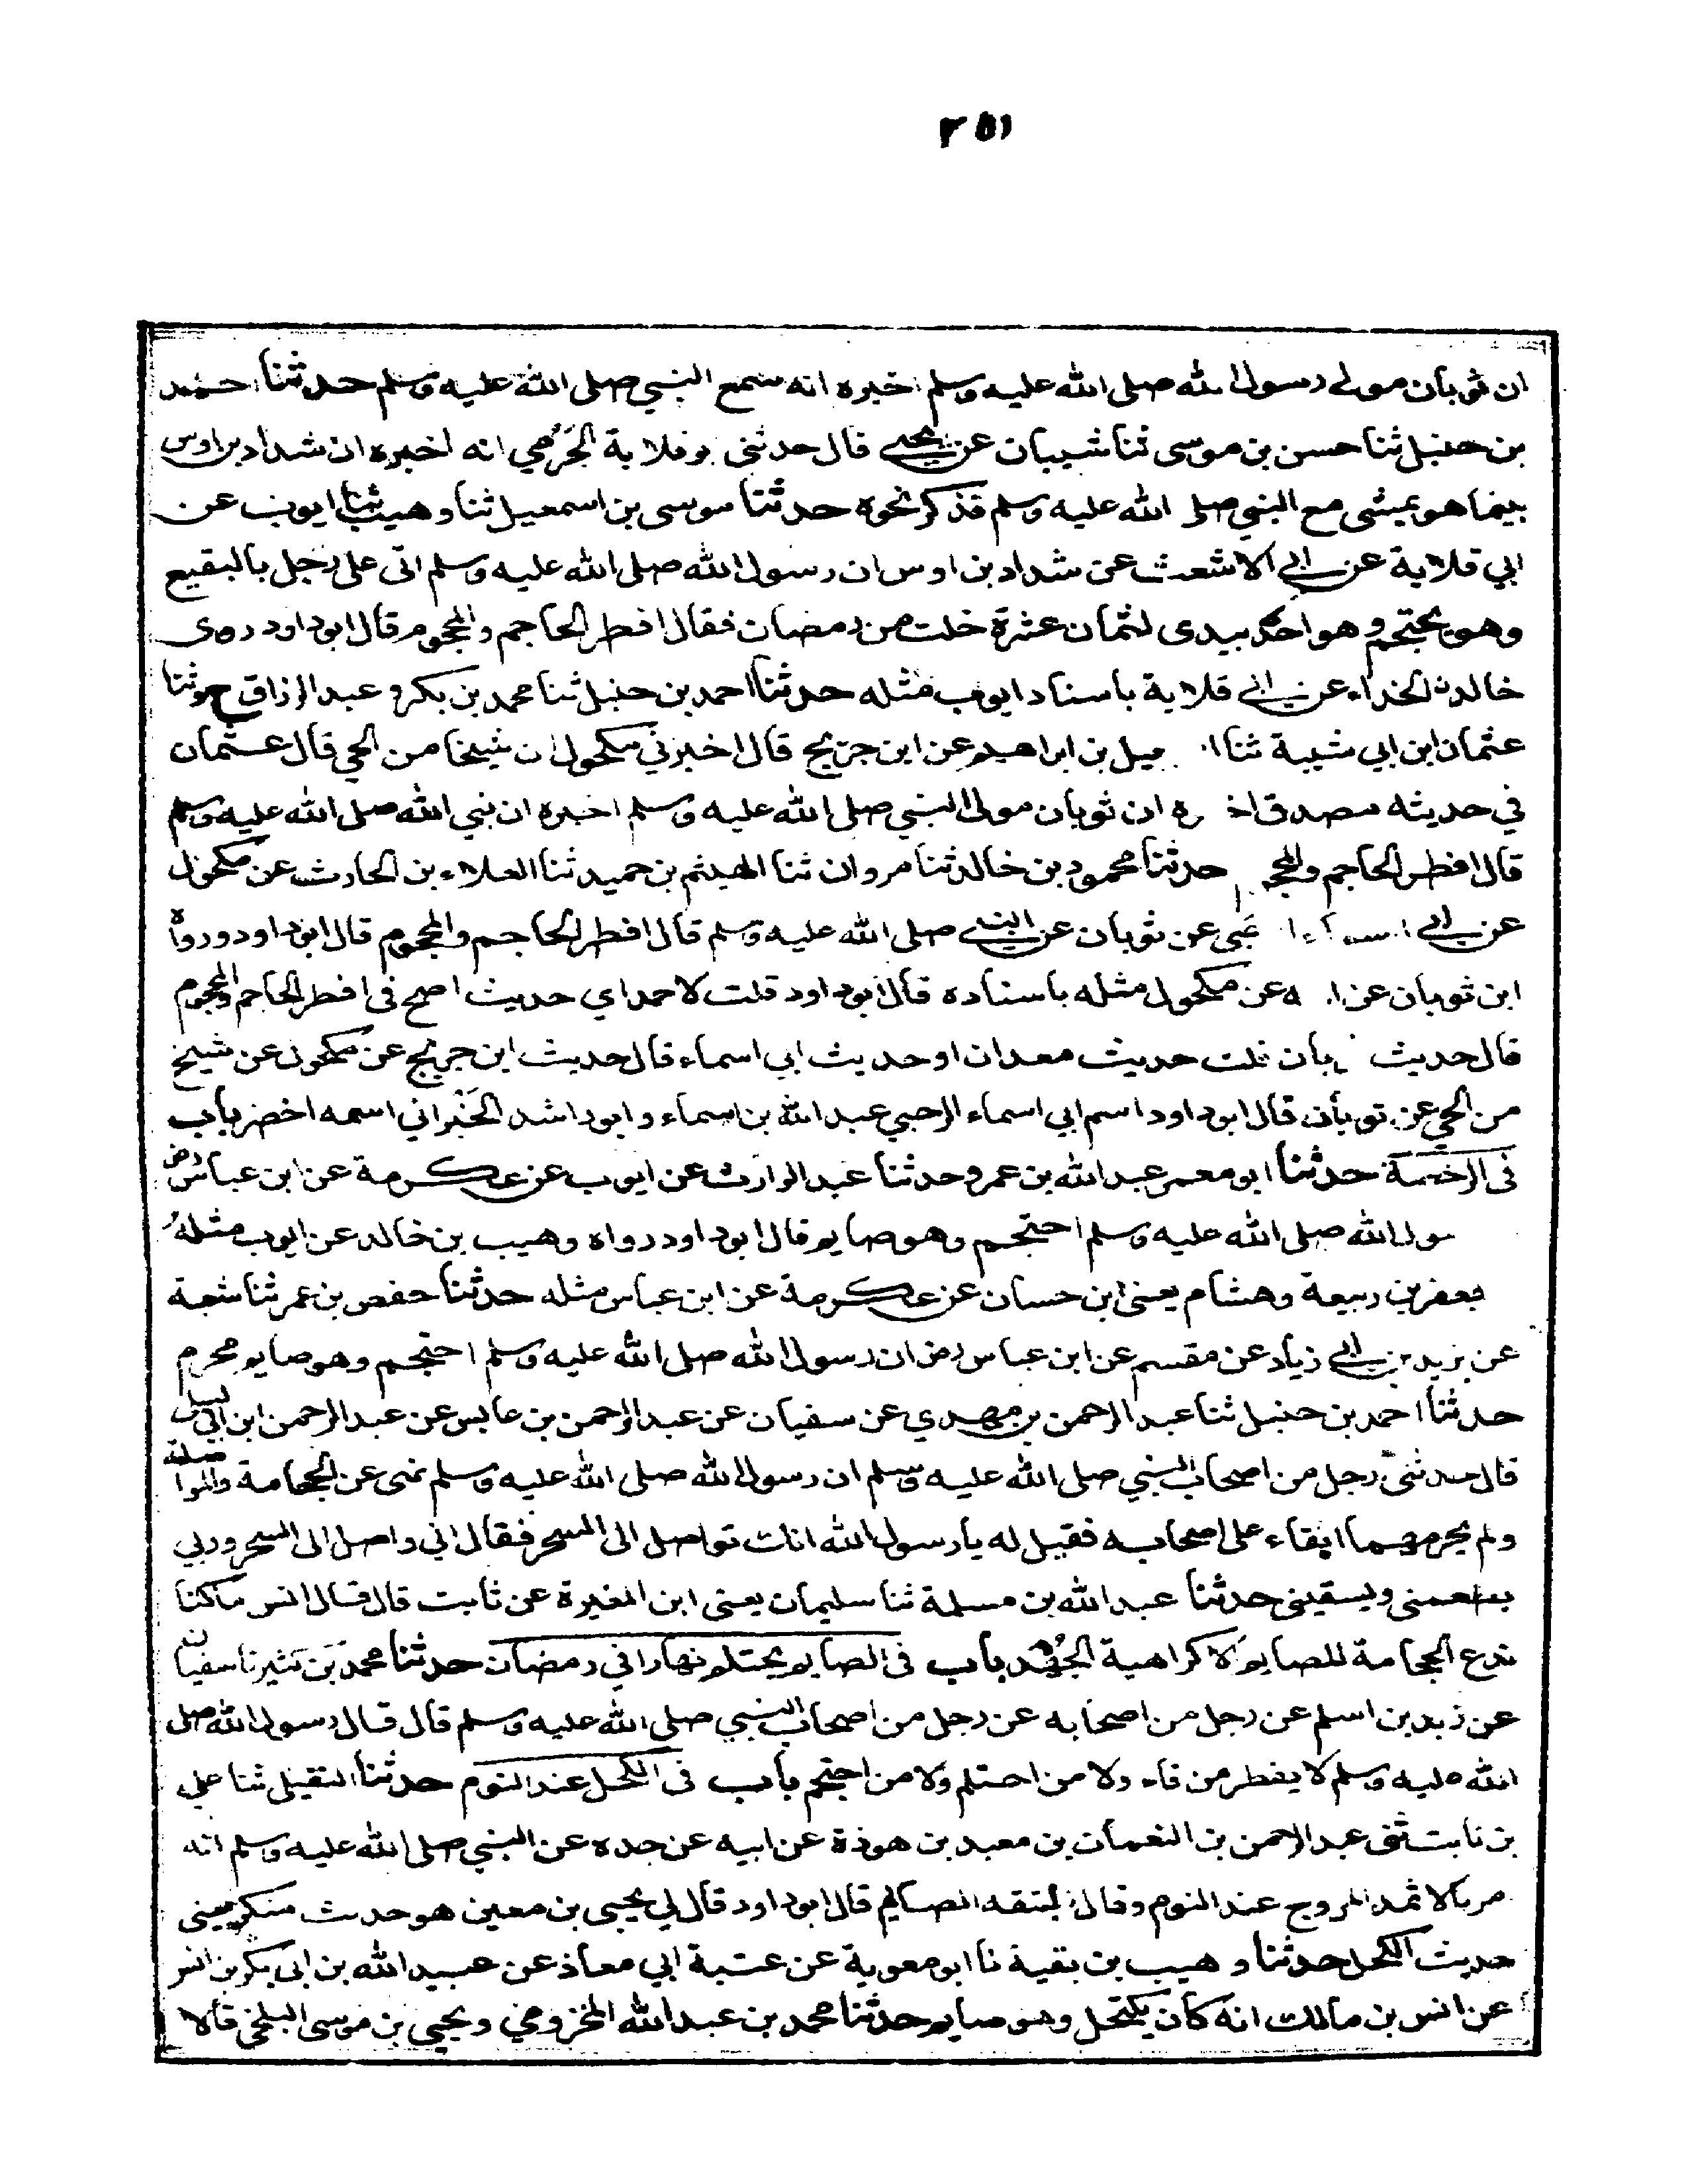 ٢٥١
ان ثوبان مولى رسول الله صلى الله عليه وسلم اخبره انه سمع النبي صلى الله عليه وسلم حدثنا احمد
بن حنبل ثنا حسن بن موسى ثنا شيبان عن يحيى قال حدثني بو قلابة الجَرْمي انه اخبره ان شداد بن اوس
بينما هو يمشي مع النبي صلى الله عليه وسلم فذكر نحوه حدثنا موسى بن اسمعيل ثنا وهيب ثنا ايوب عن
ابي قلابة عن ابي الاشعث عن شداد بن اوس ان رسول الله صلى الله عليه وسلم اتى على رجل بالبقيع
وهو يحتجم وهو اخذ بيدي لثمان عشرة خلت من رمضان فقال افطر الحاجم والمحجوم قال ابو داود روى
خالد الحذاء عن ابي قلابة باسناد ايوب مثله حدثنا احمد بن حنبل ثنا محمد بن بكر و عبد الرزاق ح وثنا
عثمان ابن ابي شيبة ثنا ا ميل بن ابراهيم عن ابن جريج قال اخبرني مكحول ان شيخا من الحي قال عثمان
في حديثه مصدق اخ ره ان ثوبان مولى النبي صلى الله عليه وسلم اخبره ان نبي الله صلى الله عليه وسلم
قال افطر الحاجم والمحج م حدثنا محمود بن خالد ثنا مروان ثنا الهيثم بن حميد ثنا العلاء بن الحارث عن مكحول
عن ابي اسماء ا حبي عن ثوبان عن النبي صلى الله عليه وسلم قال افطر الحاجم والمحجوم قال ابو داود ورواه
ابن ثوبان عن ا ه عن مكحول مثله باسناده قال ابو داود قلت لاحمد اي حديث اصح في افطر الحاجم والمحجوم
قال حديث بان قلت حديث معدان او حديث ابي اسماء قال حديث ابن جريج عن مكحول عن شيخ
من الحي عن ثوبان قال ابو داود اسم ابي اسماء الرحبي عبد الله بن اسماء و ابو راشد الحَبْراني اسمه اخضر باب
في الرخصة حدثنا ابو معمر عبد الله بن عمرو حدثنا عبد الوارث عن ايوب عن عكرمة عن ابن عباس رض
سول الله صلى الله عليه وسلم احتجم وهو صايم قال ابو داود رواه وهيب بن خالد عن ايوب مثله
جعفر بن ربيعة وهشام يعني ابن حسان عن عكرمة عن ابن عباس مثله حدثنا حفص بن عمر ثنا شعبة
عن يزيد بن ابي زياد عن مقسم عن ابن عباس رض ان رسول الله صلى الله عليه وسلم احتجم وهو صايم محرم
حدثنا احمد بن حنبل ثنا عبد الرحمن بن مهدي عن سفيان عن عبد الرحمن بن عابس عن عبد الرحمن ابن ابي ليلى
قال حدثني رجل من اصحاب النبي صلى الله عليه وسلم ان رسول الله صلى الله عليه وسلم نهى عن الحجامة والمواصلة
ولم يحرمهما ابقاء على اصحابه فقيل له يا رسول الله انك تواصل الى السحر فقال اني واصل الى السحر وربي
يطعمني ويسقيني حدثنا عبد الله بن مسلمة ثنا سليمان يعني ابن المغيرة عن ثابت قال قال انس ما كنا
ندع الحجامة للصايم الا كراهية الجُهْد باب في الصايم يحتلم نهارا في رمضان حدثنا محمد بن كثير نا سفيان
عن زيد بن اسلم عن رجل من اصحابه عن رجل من اصحاب النبي صلى الله عليه وسلم قال قال رسول الله صلى
الله عليه وسلم لا يفطر من قاء ولا من احتلم ولا من احتجم باب في الكحل عند النوم حدثنا النفيلي ثنا علي
بن ثابت ثنى عبد الرحمن بن النعمان بن معبد بن هوذة عن ابيه عن جده عن النبي صلى الله عليه وسلم انه
مر بالاثمد المروح عند النوم وقال ليتقه الصايم قال ابو داود قال لي يحيى بن معين هو حدث منكر يعني
حديث الكحل حدثنا وهيب بن بقية نا ابو معوية عن عتبة ابي معاذ عن عبيد الله بن ابي بكر بن انس
عن انس بن مالك انه كان يكتحل وهو صايم حدثنا محمد بن عبد الله المخزومي ويحيى بن موسى البلخي قالا